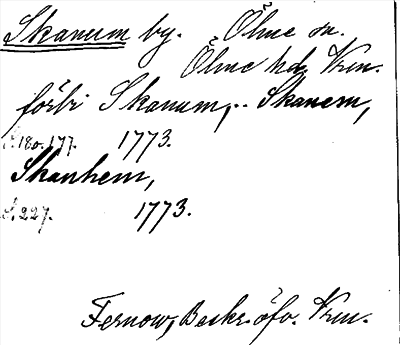 Skanum by. Ölme sn.
Ölme hd. Vrm.
förbi Skanum, .. Skanem,
S. 180. 177. 1773.
Skanhem,
S. 227. 1773.
Fernow, Beskr. öfv. Vrm.